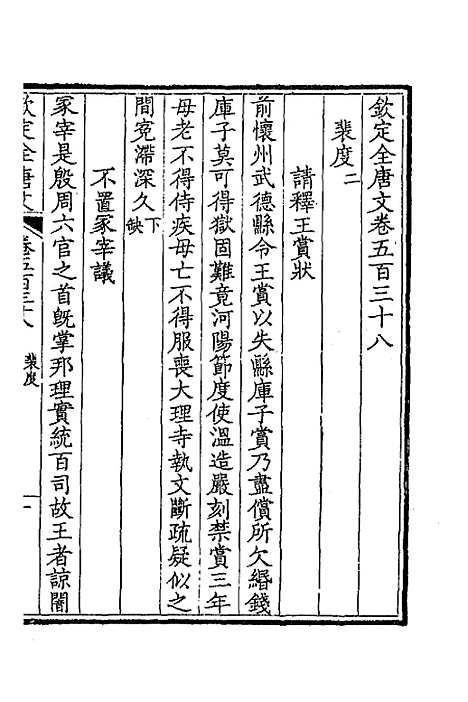 欽定全唐文卷五百三十八
裴度二
請釋王賞狀
前懷州武德縣令王賞以失縣庫子賞乃盡償所欠緡錢
庫子莫可得獄固難竟河陽節度使溫造嚴刻禁賞三年
母老不得侍疾母亡不得服喪大理寺執文斷疏疑似之
間寃滯深久下缺
不置冢宰議
冢宰是殷周六官之首旣掌邦理實統百司故王者諒闇
欽定全唐文 卷五百三十八 裴度 一